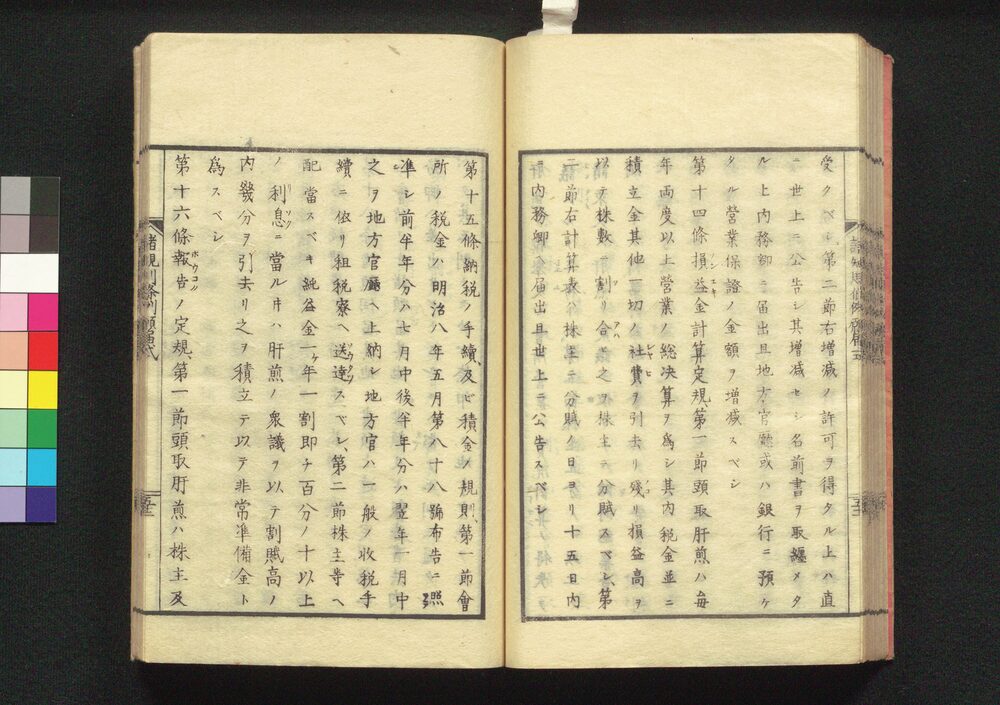 受クベシ第二節右増減ノ許可ヲ得タル上ハ直
ニ世上ニ公告シ其増減セシ名前書ヲ取纏メタ
ル上内務卿ニ届出且地方官廳或ハ銀行ニ預ケ
タル營業保證ノ金額ヲ増減スベシ
第十四條損益金計算定規、第一節頭取肝煎ハ毎
年両度以上營業ノ総決算ヲ為シ其内税金並ニ
積立金其他一切ノ社費ヲ引去リ殘リ損益高ヲ
以テ株數ニ割リ合之ヲ株主ニ分賦スベシ、第
二節右計算表ハ株主ニ分賦ノ日ヨリ十五日内
ニ内務卿ヘ届出且世上ニ公告スベシ
第十五條納税ノ手續及ビ積金ノ規則、第一節會
所ノ税金ハ明治八年五月第八十八號布告ニ照
準シ前半年分ハ七月中後半年分ハ翌年一月中
之ヲ地方官廳ヘ上納シ地方官ハ一般ノ收税手
續ニ依リ租税寮ヘ送達スベシ、第二節株主等ヘ
配當スベキ純益金一ケ年一割即チ百分ノ十以上
ノ利息ニ當ルキハ肝煎ノ衆議ヲ以テ割賦高ノ
内幾分ヲ引去リ之ヲ積立テ以テ非常準備金ト
爲スベシ
第十六條報告ノ定規、第一節頭取肝煎ハ株主及